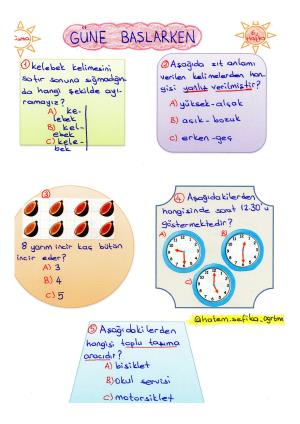 Cuma
GÜNE BASLARKEN
6.
Hafta
① Kelebek kelimesini
satır sonuna sığmadığın-
da hangi şekilde ayı-
ramayız?
A) ke-
lebek
B) kel-
ebek
C) kele-
bek
② Aşağıda zıt anlamı
verilen kelimelerden han-
gisi yanlış verilmiştir?
A) yüksek-alçak
B) açık-bozuk
C) erken-geç
③
8 yarım incir kaç bütün
incir eder?
A) 3
B) 4
C) 5
④ Aşağıdakilerden
hangisinde saat 12.30'u
göstermektedir?
A)
B)
C)
@hatem_sefika_ogrtm
⑤ Aşağıdakilerden
hangisi toplu taşıma
aracıdır?
A) bisiklet
B) okul servisi
C) motorsiklet